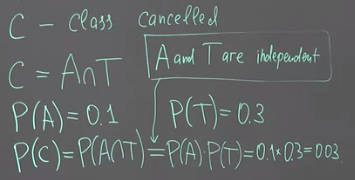 C - Class Cancelled
A and T are independent
C = A∩T
P(A) = 0.1 P(T) = 0.3
P(C) = P(A∩T) = P(A)·P(T) = 0.1×0.3 = 0.03.